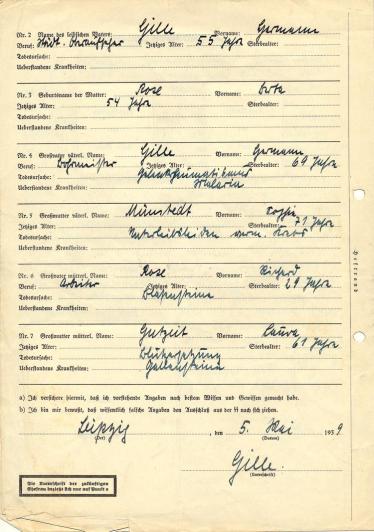 Nr. 2 Name des leiblichen Vaters: Gille Vorname: Hermann
Beruf: Städt. Jetziges Alter: 55 Jahre Sterbealter:
Todesursache:
Ueberstandene Krankheiten:
Nr. 3 Geburtsname der Mutter: Rose Vorname:
Jetziges Alter: 54 Jahre Sterbealter:
Todesursache:
Ueberstandene Krankheiten:
Nr. 4 Großvater väterl. Name: Gille Vorname: Hermann
Beruf: Jetziges Alter: Sterbealter: 69 Jahre
Todesursache: Gelenkrheumatismus
Ueberstandene Krankheiten: Malaria
Nr. 5 Großmutter väterl. Name: Münstedt Vorname: Sophie
Jetziges Alter: Sterbealter: 71 Jahre
Todesursache: Unterleibsleiden verm. Krebs
Ueberstandene Krankheiten:
Nr. 6 Großvater mütterl. Name: Rose Vorname: Richard
Beruf: Arbeiter Jetziges Alter: Sterbealter: 29 Jahre
Todesursache: Blasensteine
Ueberstandene Krankheiten:
Nr. 7 Großmutter mütterl. Name: Gutzeit Vorname: Laura
Jetziges Alter: Sterbealter: 61 Jahre
Todesursache: Blutzersetzung
Ueberstandene Krankheiten: Gallensteine
a) Ich versichere hiermit, daß ich vorstehende Angaben nach bestem Wissen und Gewissen gemacht habe.
b) Ich bin mir bewußt, daß wissentlich falsche Angaben den Ausschluß aus der SS nach sich ziehen.
Leipzig, den 5. Mai 1939
(Ort) (Datum)
Gille.
(Unterschrift)
Die Unterschrift der zukünftigen
Ehefrau bezieht sich nur auf Punkt a